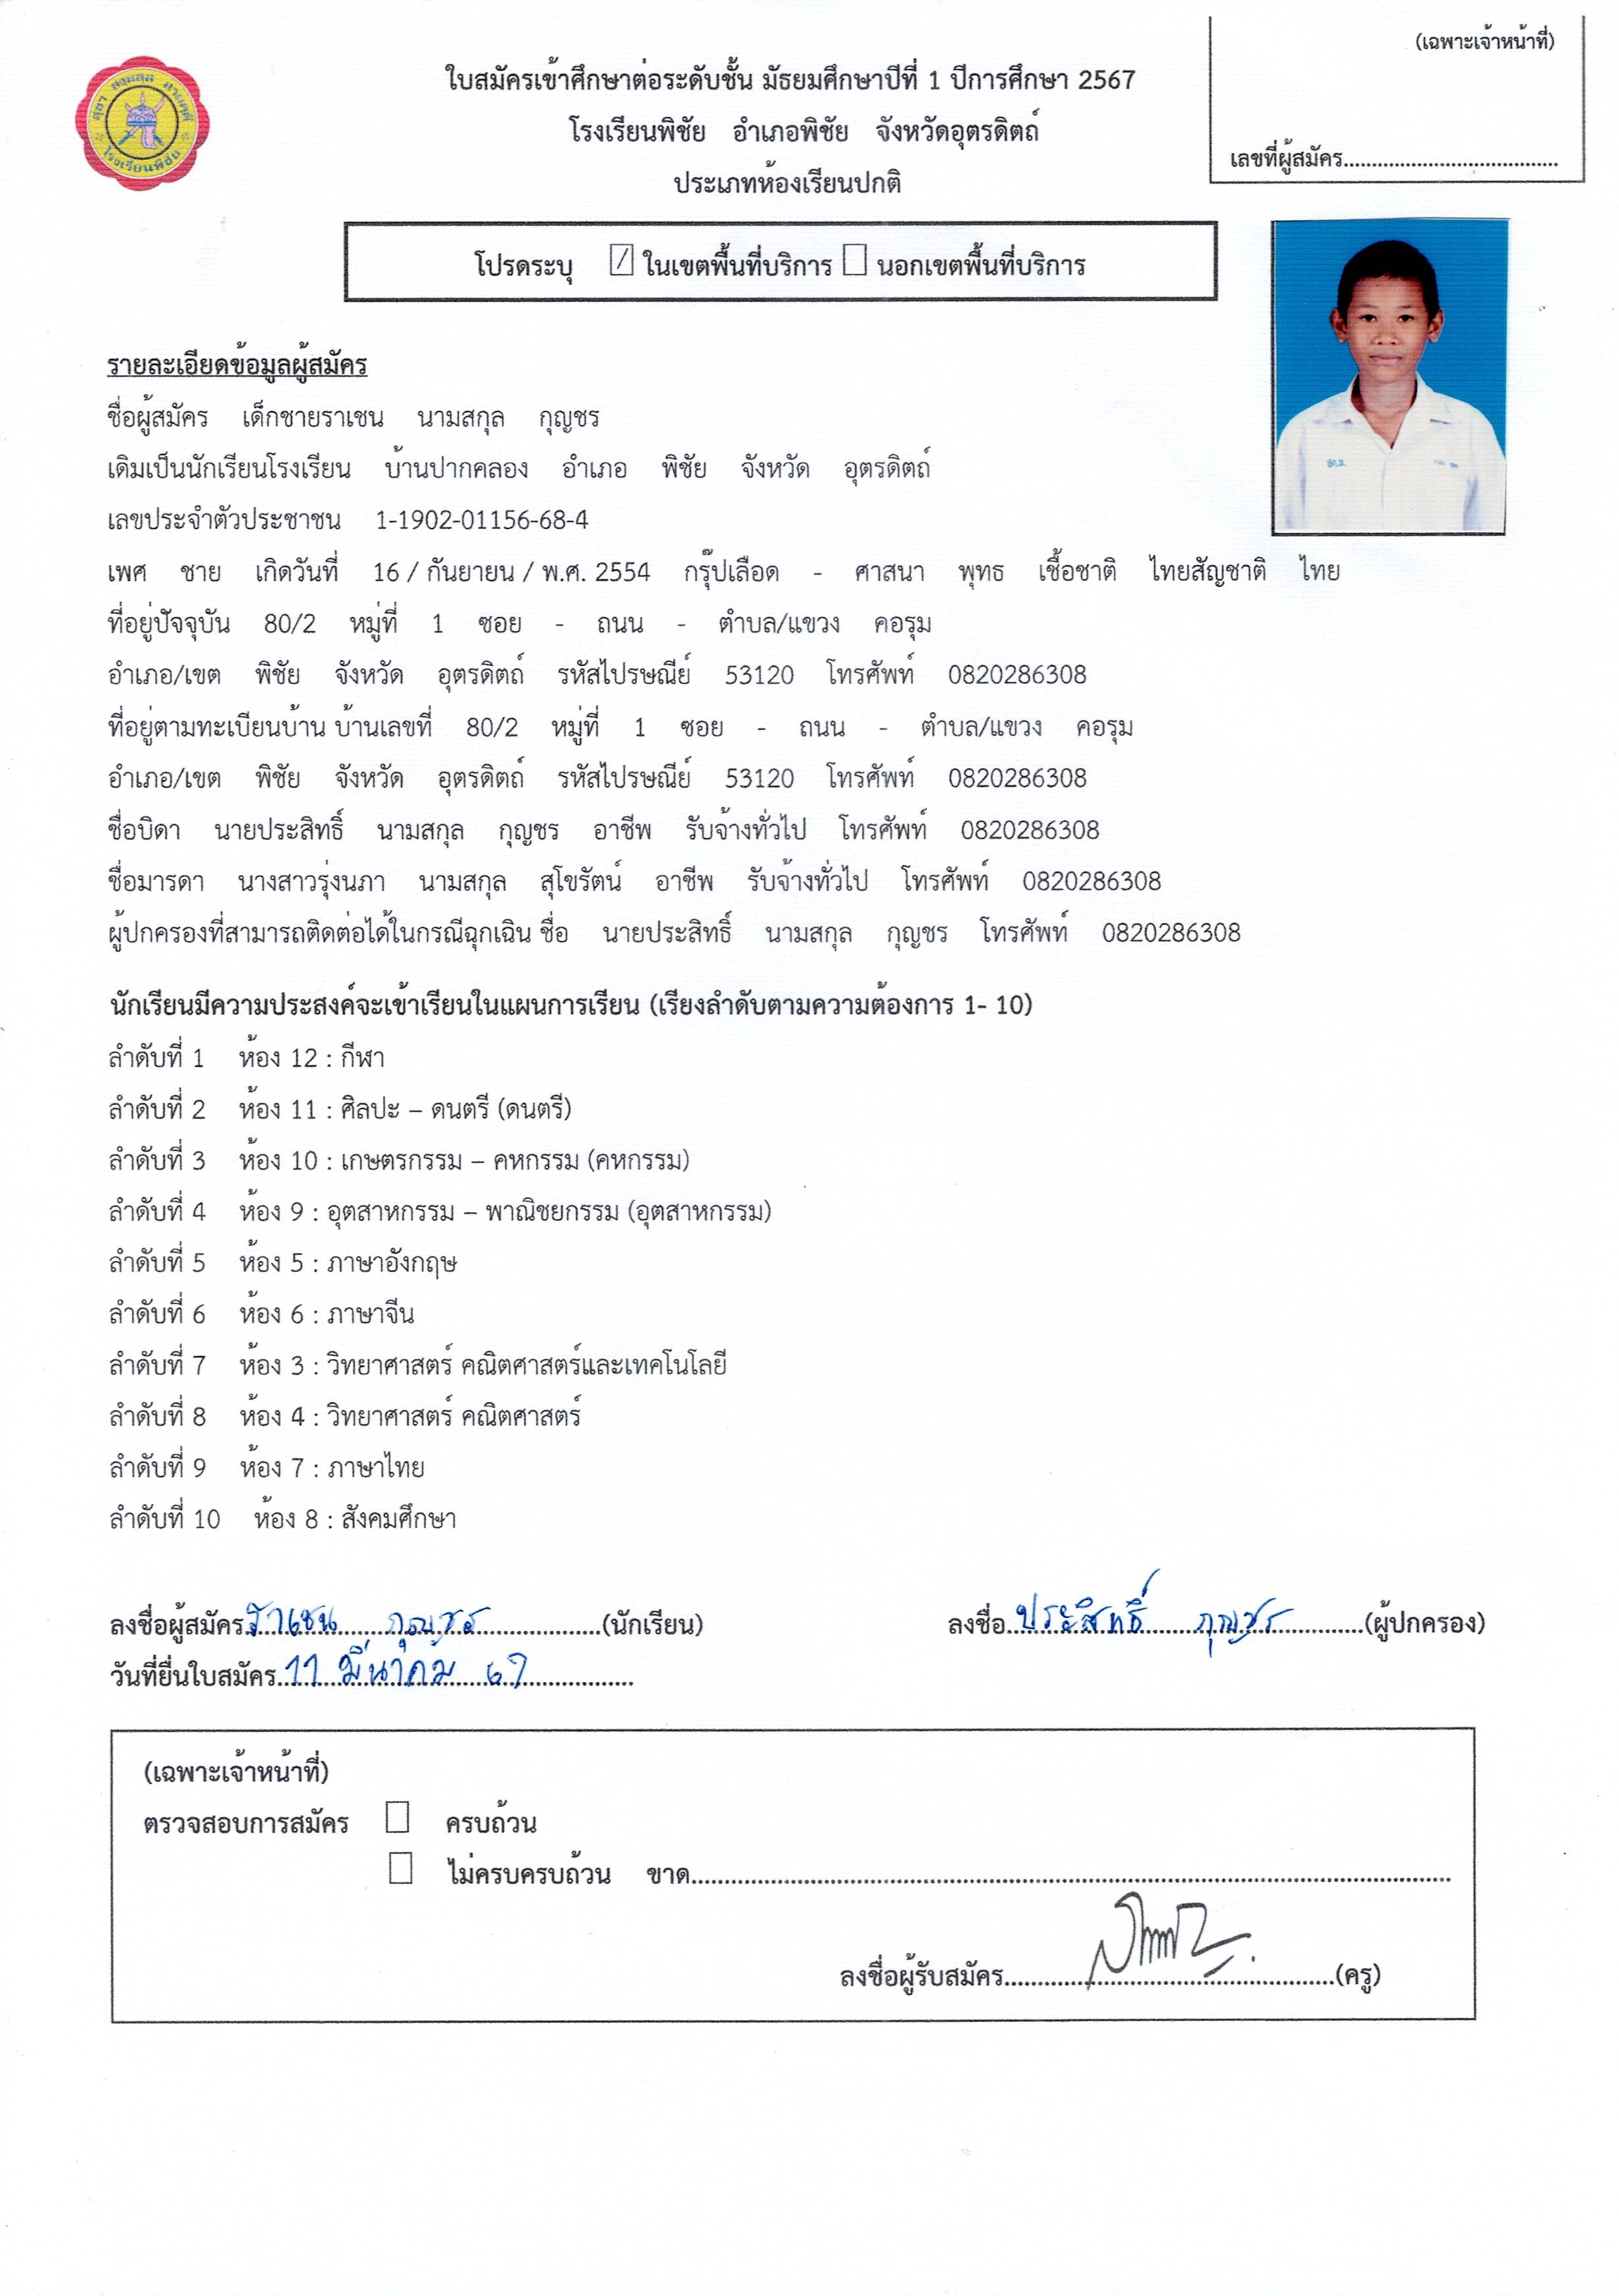 (เฉพาะเจ้าหน้าที่)
ใบสมัครเข้าศึกษาต่อระดับชั้น มัธยมศึกษาปีที่ 1 ปีการศึกษา 2567
โรงเรียนพิชัย อำเภอพิชัย จังหวัดอุตรดิตถ์
เลขที่ผู้สมัคร......................................
ประเภทห้องเรียนปกติ
โรงเรียนพิชัย
โปรดระบุ ☑ ในเขตพื้นที่บริการ ☐ นอกเขตพื้นที่บริการ
รายละเอียดข้อมูลผู้สมัคร
ชื่อผู้สมัคร เด็กชายราเชน นามสกุล กุญชร
เดิมเป็นนักเรียนโรงเรียน บ้านปากคลอง อำเภอ พิชัย จังหวัด อุตรดิตถ์
เลขประจำตัวประชาชน 1-1902-01156-68-4
เพศ ชาย เกิดวันที่ 16 / กันยายน / พ.ศ. 2554 กรุ๊ปเลือด - ศาสนา พุทธ เชื้อชาติ ไทยสัญชาติ ไทย
ที่อยู่ปัจจุบัน 80/2 หมู่ที่ 1 ซอย - ถนน - ตำบล/แขวง คอรุม
อำเภอ/เขต พิชัย จังหวัด อุตรดิตถ์ รหัสไปรษณีย์ 53120 โทรศัพท์ 0820286308
ที่อยู่ตามทะเบียนบ้าน บ้านเลขที่ 80/2 หมู่ที่ 1 ซอย - ถนน - ตำบล/แขวง คอรุม
อำเภอ/เขต พิชัย จังหวัด อุตรดิตถ์ รหัสไปรษณีย์ 53120 โทรศัพท์ 0820286308
ชื่อบิดา นายประสิทธิ์ นามสกุล กุญชร อาชีพ รับจ้างทั่วไป โทรศัพท์ 0820286308
ชื่อมารดา นางสาวรุ่งนภา นามสกุล สุโขรัตน์ อาชีพ รับจ้างทั่วไป โทรศัพท์ 0820286308
ผู้ปกครองที่สามารถติดต่อได้ในกรณีฉุกเฉิน ชื่อ นายประสิทธิ์ นามสกุล กุญชร โทรศัพท์ 0820286308
นักเรียนมีความประสงค์จะเข้าเรียนในแผนการเรียน (เรียงลำดับตามความต้องการ 1- 10)
ลำดับที่ 1 ห้อง 12 : กีฬา
ลำดับที่ 2 ห้อง 11 : ศิลปะ – ดนตรี (ดนตรี)
ลำดับที่ 3 ห้อง 10 : เกษตรกรรม – คหกรรม (คหกรรม)
ลำดับที่ 4 ห้อง 9 : อุตสาหกรรม – พาณิชยกรรม (อุตสาหกรรม)
ลำดับที่ 5 ห้อง 5 : ภาษาอังกฤษ
ลำดับที่ 6 ห้อง 6 : ภาษาจีน
ลำดับที่ 7 ห้อง 3 : วิทยาศาสตร์ คณิตศาสตร์และเทคโนโลยี
ลำดับที่ 8 ห้อง 4 : วิทยาศาสตร์ คณิตศาสตร์
ลำดับที่ 9 ห้อง 7 : ภาษาไทย
ลำดับที่ 10 ห้อง 8 : สังคมศึกษา
ลงชื่อผู้สมัคร ราเชน กุญชร (นักเรียน) ลงชื่อ ประสิทธิ์ กุญชร (ผู้ปกครอง)
วันที่ยื่นใบสมัคร 11 มีนาคม 67
(เฉพาะเจ้าหน้าที่)
ตรวจสอบการสมัคร ☐ ครบถ้วน
☐ ไม่ครบครบถ้วน ขาด......................................
ลงชื่อผู้รับสมัคร......................................(ครู)